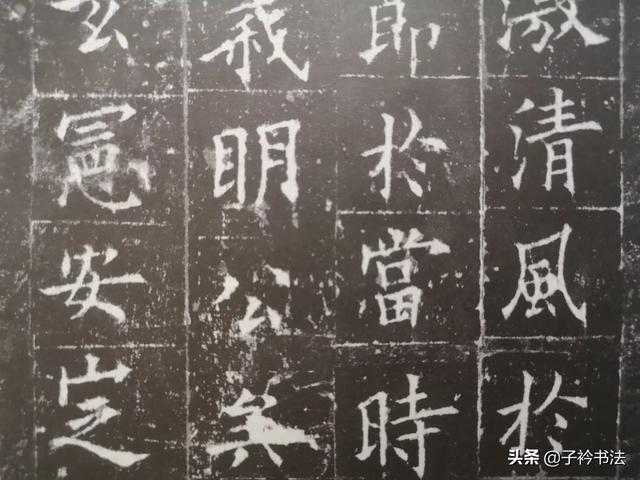 激清風於
節於當時
明公矣
玄憲安定
头条 @子衿书法